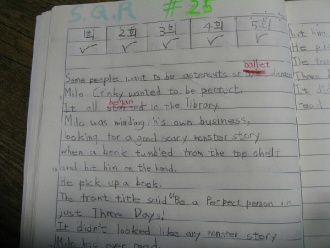 S.Q.R #25
1회 2회 3회 4회 5회
✓ ✓ ✓ ✓ ✓
ballet
Some people want to be astronauts or dancer
Milo Crinky wanted to be perfect.
began
It all in the library
Milo was minding his own business,
looking for a good scary monster story
when a book tumbled from the top shelf
and hit him on the head.
He pick up a book.
The front title said "Be a Perfect person in
just Three Days!
It didn't looked like any monster story
Milo has ever read